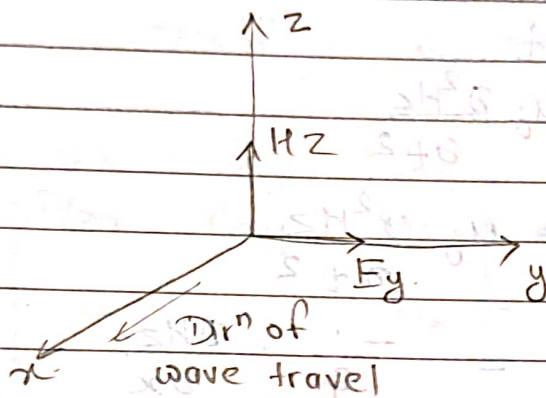 z
Hz
Ey
y
Dirⁿ of
x
wave travel